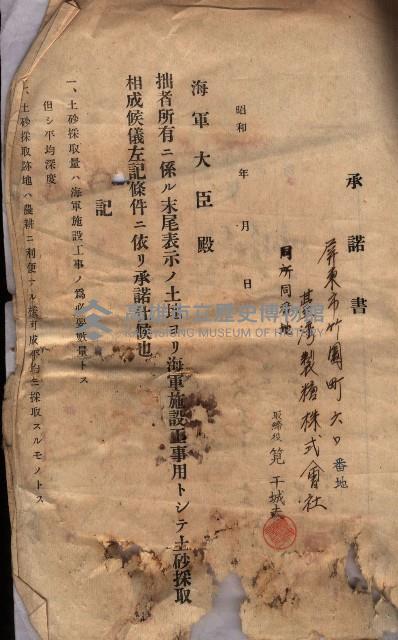 承諾書
屏東市竹園町六〇番地
臺灣製糖株式會社
同所同番地
取締役 筧干城夫
昭和 年 月 日
海軍大臣殿
拙者所有ニ係ル末尾表示ノ土地ヨリ海軍施設工事用トシテ土砂採取
相成候儀左記條件ニ依リ承諾仕候也
記
一、土砂採取量ハ海軍施設工事ノ爲必要數量トス
但シ平均深度
一、土砂採取跡地ハ農耕ニ利便ナル樣可成平均ニ採取スルモノトス
高雄市立歷史博物館
KAOHSIUNG MUSEUM OF HISTORY